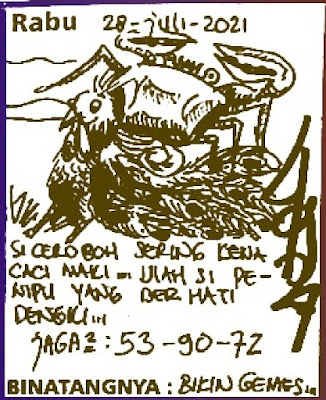 Rabu 28-juli-2021
SI CEROBOH SERING KENA
CACI MAKI ... ULAH SI PE-
NIPU YANG BERHATI
DENGKI ...
JAGA² : 53-90-72
BINATANGNYA : BIKIN GEMES...